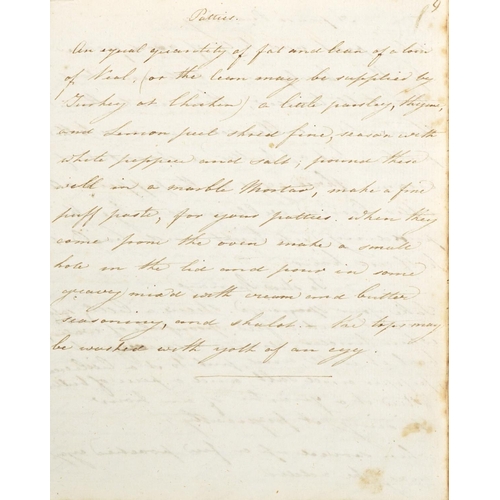 Patties.
9
An equal quantity of fat and lean of a loin
of Veal. (or the lean may be supplied by
Turkey or Chicken) a little parsley, thyme,
and Lemon peel shred fine, season with
white pepper and salt; pound these
well in a marble Mortar, make a fine
puff paste, for your patties. when they
come from the oven make a small
hole in the lid and pour in some
gravey mix'd with cream and butter
seasoning, and shalot. the tops may
be washed with yolk of an egg.